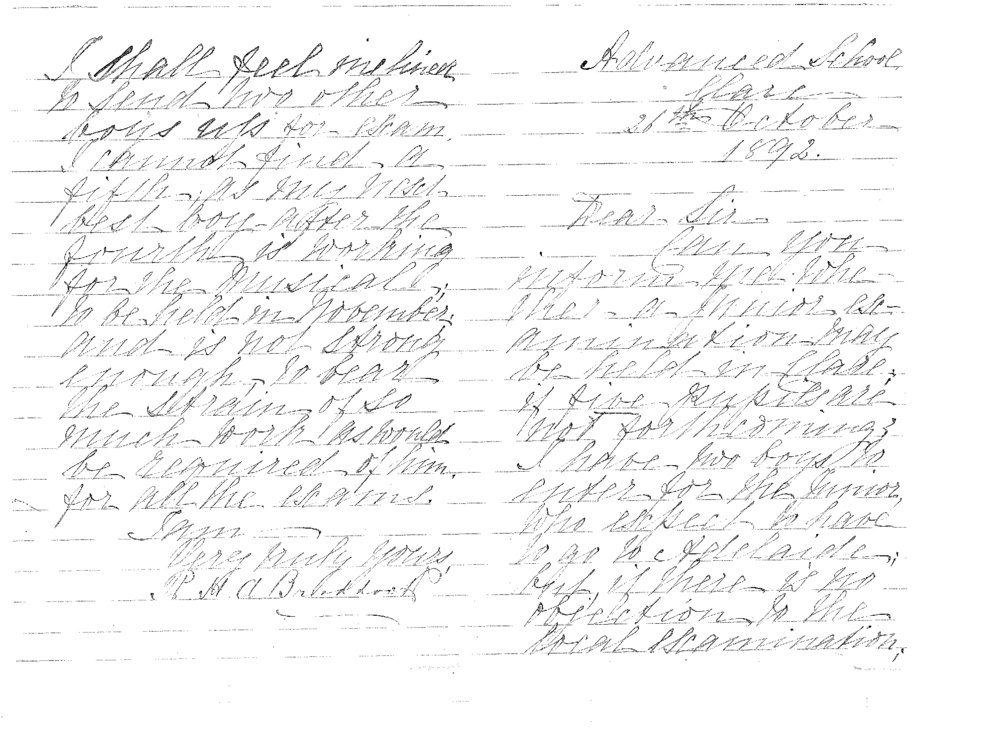 Advanced School
Clare
26th October
1892.
Dear Sir
Can you
inform me whe-
ther a Junior ex-
amination may
be held in Clare,
if five pupils are
not forthcoming?
I have two boys to
enter for the Junior,
who expect to have
to go to Adelaide;
but, if there is no
objection to the
local examination,
I shall feel inclined
to send two other
boys up for exam.
I cannot find a
fifth, as my next
best boy after the
fourth is working
for the Musical,
to be held in November,
and is not strong
enough, to bear
the strain of so
much work as would
be required of him.
for all the exams.
I am
Very truly yours,
H A